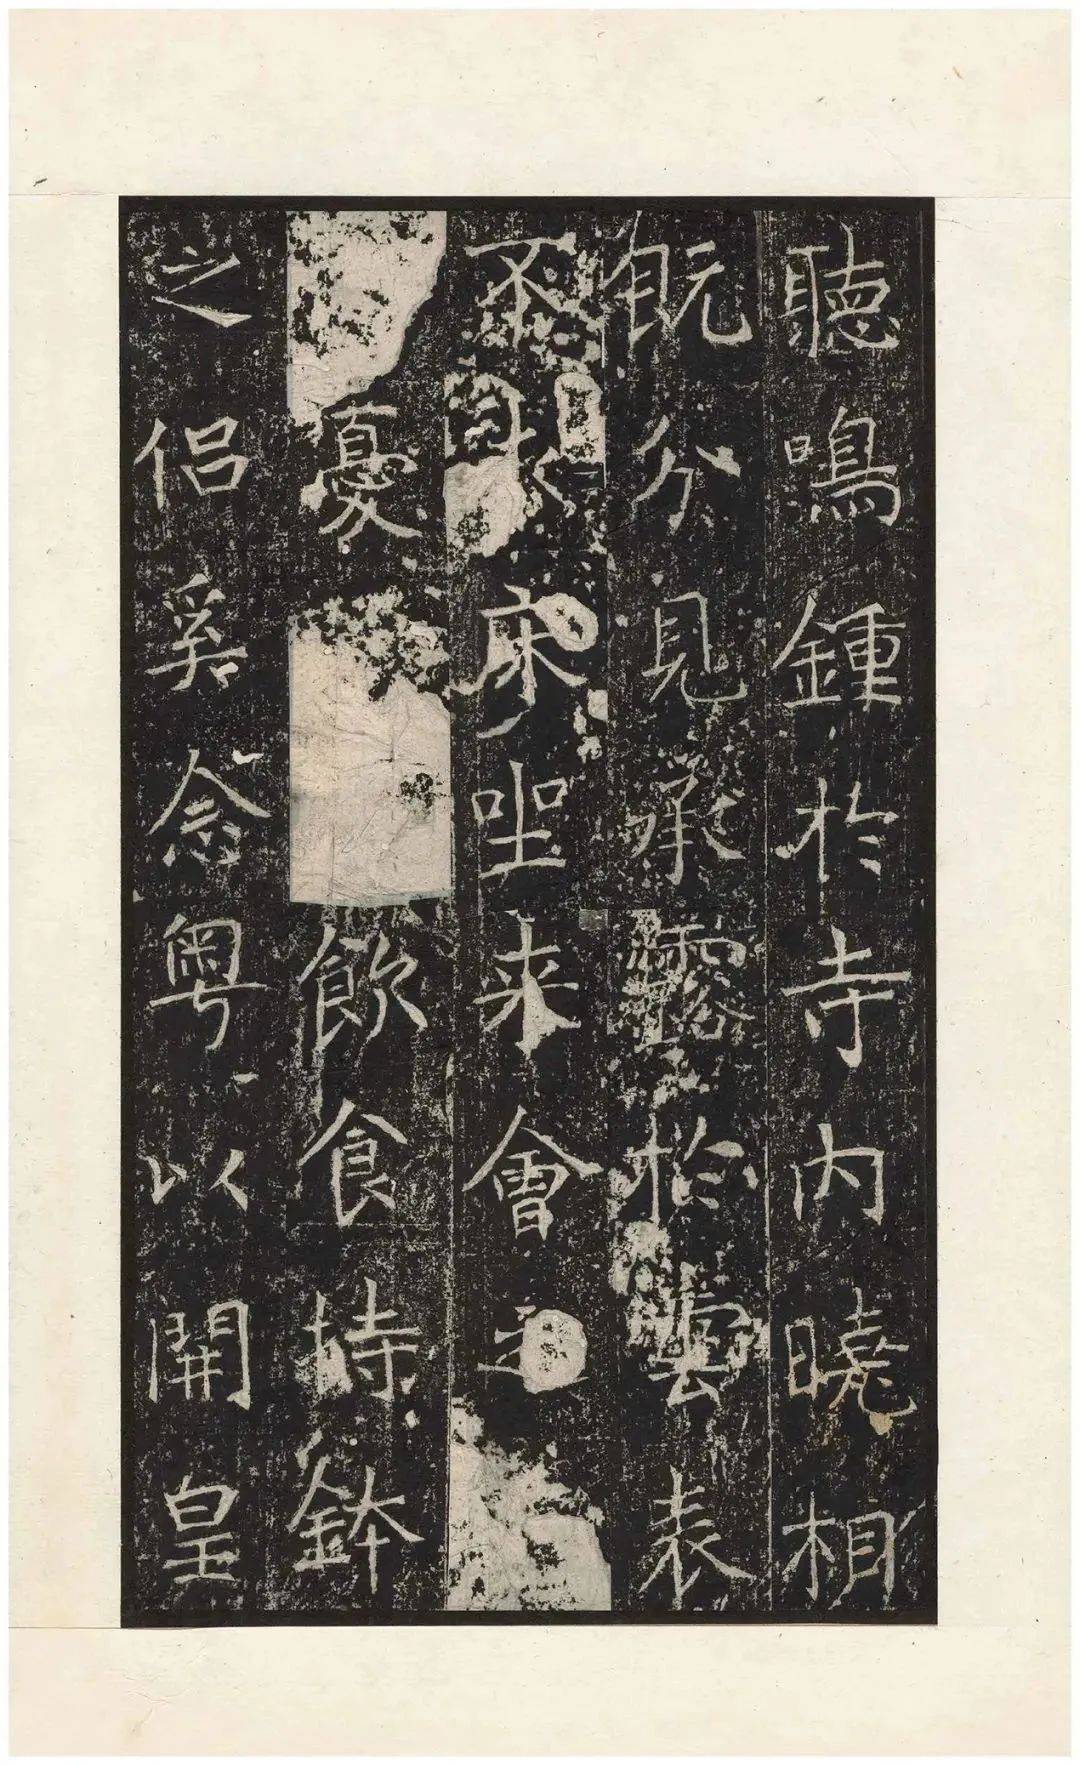 聽鳴鍾於寺內曉相
既分見承露於雲表
不床坐来會之
憂飲食持鉢
之侶奚念粵以開皇